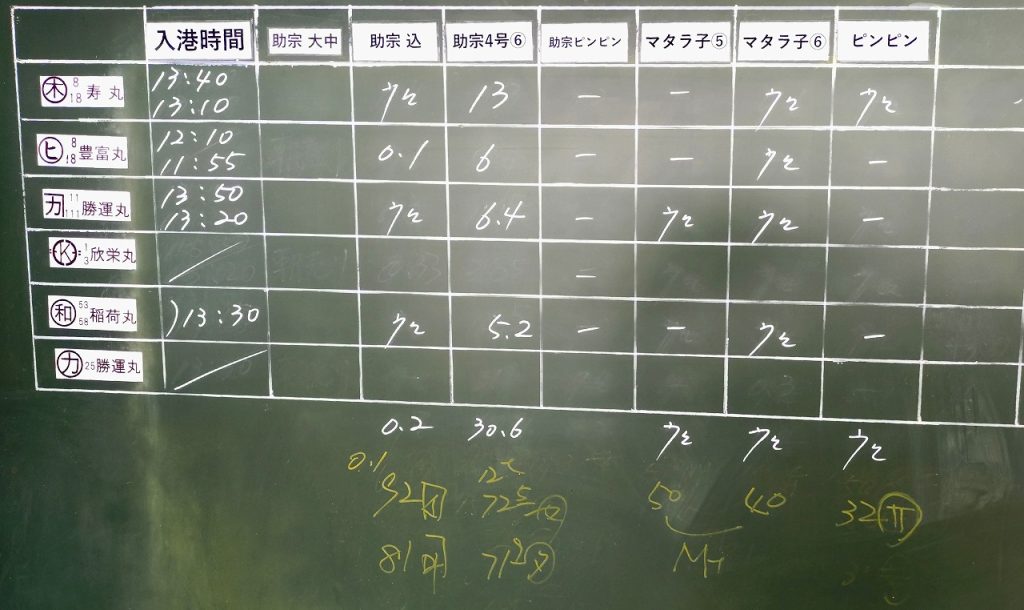 入港時間 助宗 大中 助宗 込 助宗4号⑥ 助宗ピンピン マタラ子⑤ マタラ子⑥ ピンピン
㊍ 8 18 寿丸 13:40 13:10 ウヒ 13 － － ウヒ ウヒ
ヒ 8 18 豊富丸 12:10 11:55 0.1 6 － － ウヒ －
カ 11 111 勝運丸 13:50 13:20 ウヒ 6.4 － ウヒ ウヒ －
K 1 3 欣栄丸 ／ －
和 53 58 稲荷丸 )13:30 ウヒ 5.2 － － ウヒ －
カ 25 勝運丸 ／
0.2 30.6 ウヒ ウヒ ウヒ
0.1
92 725 50 40 32
81 712